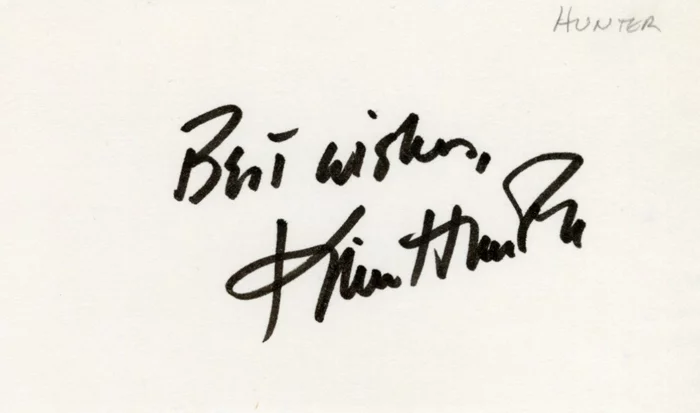 HUNTER
Best wishes,
Kim Hunter